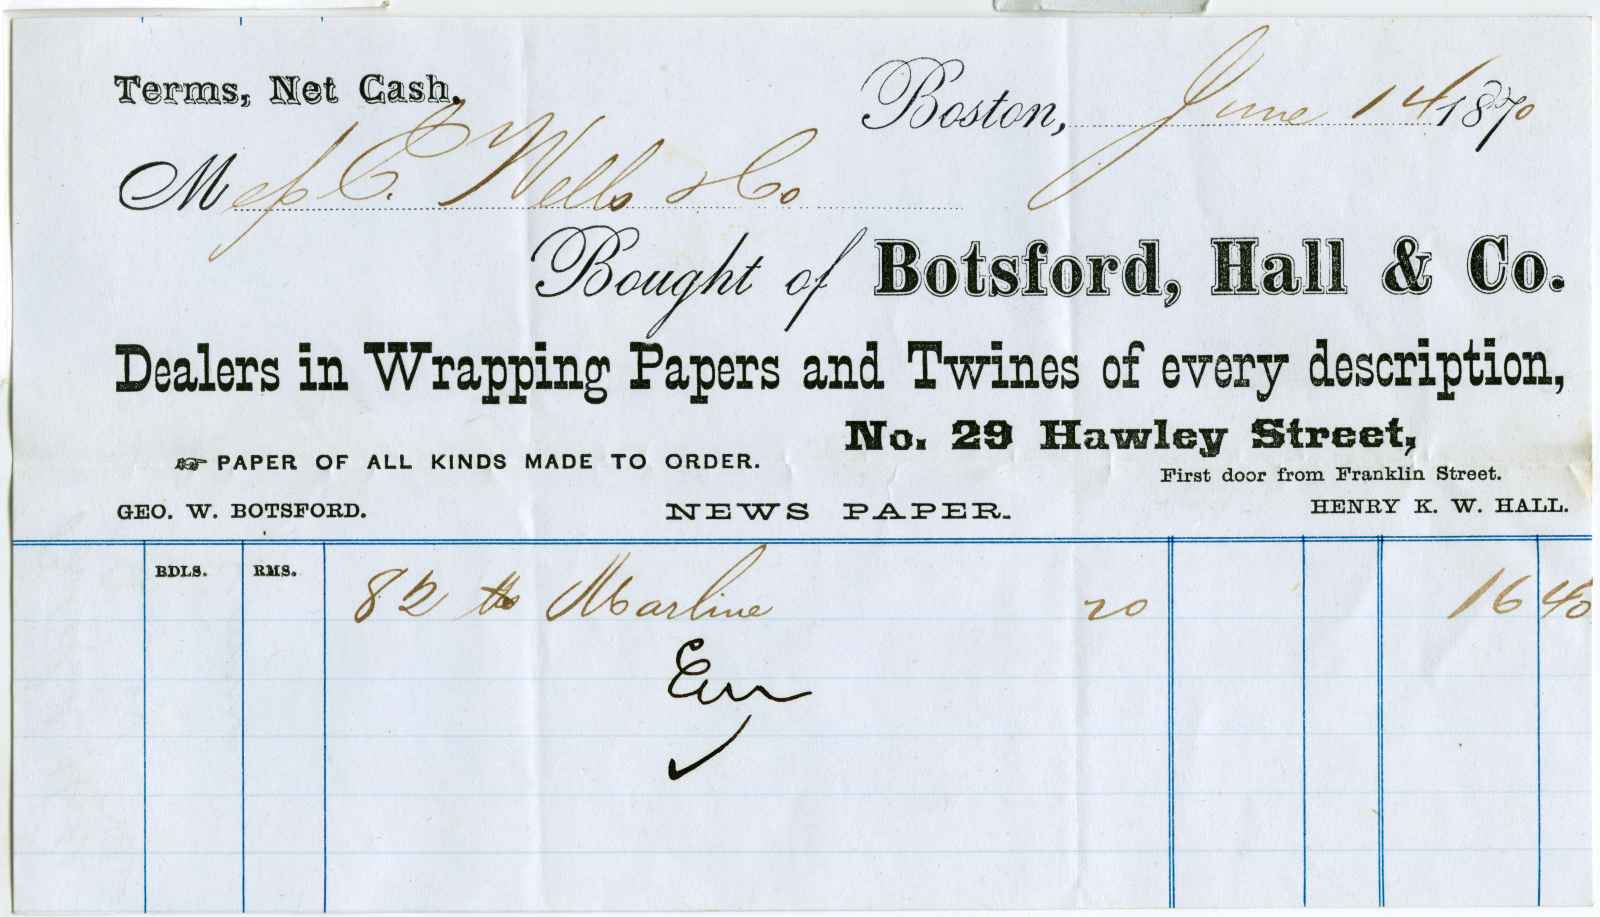 Terms, Net Cash.
Boston, June 14 1870
Mess E. Wells & Co
Bought of Botsford, Hall & Co.
Dealers in Wrapping Papers and Twines of every description,
No. 29 Hawley Street,
☞ PAPER OF ALL KINDS MADE TO ORDER.
First door from Franklin Street.
GEO. W. BOTSFORD. NEWS PAPER. HENRY K. W. HALL.
BDLS. RMS.
82 lbs Marline 20 16 40